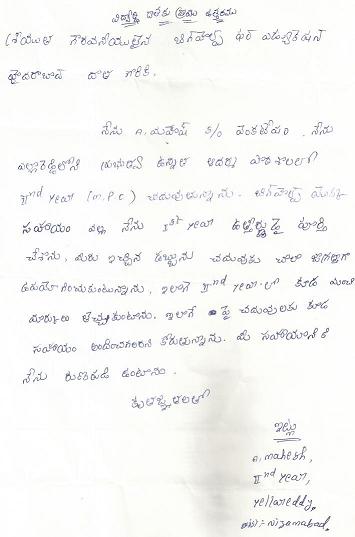 విద్యార్థి దాతకు వ్రాయు ఉత్తరము
శ్రీయుత గౌరవనీయులైన బిగ్‌హెల్ప్ ఫర్ ఎడ్యుకేషన్
హైదరాబాద్ దాత గారికి.
నేను A. మహేష్ S/o వెంకటేశం. నేను
ఎల్లారెడ్డిలోని ప్రభుత్వ ఉన్నత ఆదర్శ పాఠశాలలో
IInd year (M.P.C) చదువుతున్నాను. బిగ్‌హెల్ప్ యొక్క
సహాయం వల్ల నేను Ist year పూర్తి
చేశాను, మీరు ఇచ్చిన డబ్బును చదువుకు చాలా
ఉపయోగించుకుంటున్నాను, ఇలాగే IInd year లో కూడ మంచి
మార్కులు తెచ్చుకుంటాను. ఇలాగే పై చదువులకు కూడ
సహాయం అందించగలరని కోరుతున్నాను. మీ సహాయానికి
నేను ఉంటాను.
కృతజ్ఞతలతో
ఇట్లు
A. mahesh,
IInd year,
yellareddy,
Dist:- Nizamabad.